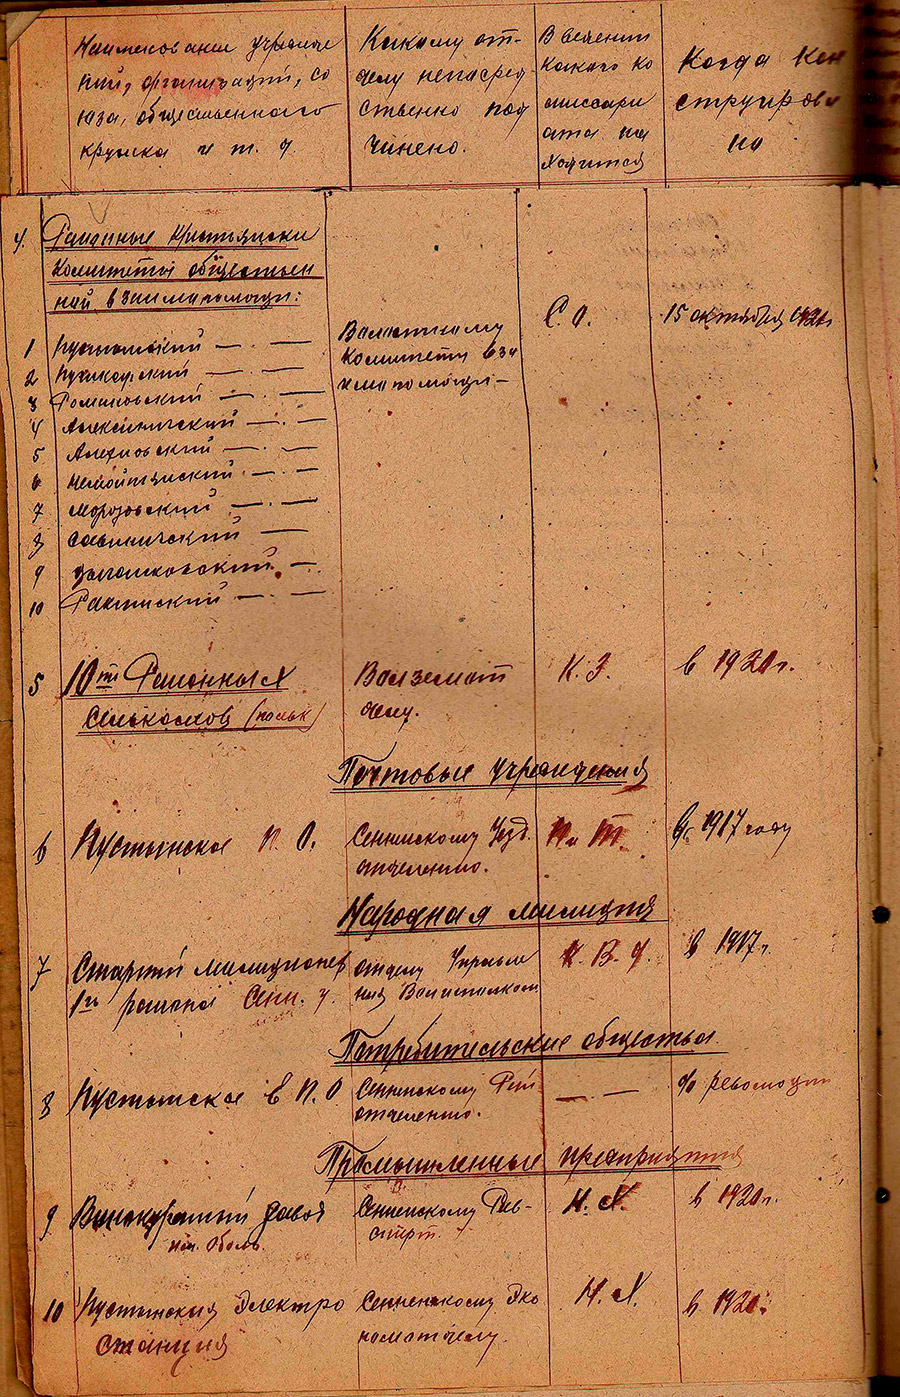 Наименование учрежде
ний, организаций, со
юза, общественного
кружка и т. д
Какому от-
делу непосред
ственно под
чинено.
В ведении
какого ко
миссари
ата на
ходится
Когда кон
струирова
но
4. Районные Крестьянски
Комитеты обществен
ной взаимопомощи:
Волостному
Комитету вза
имопомощи-
С. О.
15 октября 1921г
1 Пустынский — . —
2 — . —
3 Романовский — . —
4 Алексиничский — . —
5 — . —
6 — . —
7 Морозовский — . —
8 Савиничский —
9 — . —
10 — . —
5 10ти Районных
Селькомов (польк)
Волземот
делу.
К. З.
в 1920 г.
Почтовые Учреждения
6 Пустынское П. О.
Сеннинскому Уезд.
отделению.
П. и Т.
в 1917 году
Народная милиция
7 Старший милиционер
1го района Сенн. у.
отделу Управле
ния Волисполком
К. В. Д.
в 1917 г.
Потребительские общества
8 Пустынское Е П. О
Сеннинскому Рай
отделению.
— . —
до революции
Промышленные предприятия
9 Винокуренный завод
им. Оболь.
Сеннинскому Рай-
спирт.
Н. Х.
в 1920 г.
10 Пустынская Электро
станция
Сенненскому Эко
номотделу.
Н. Х.
в 1921г.